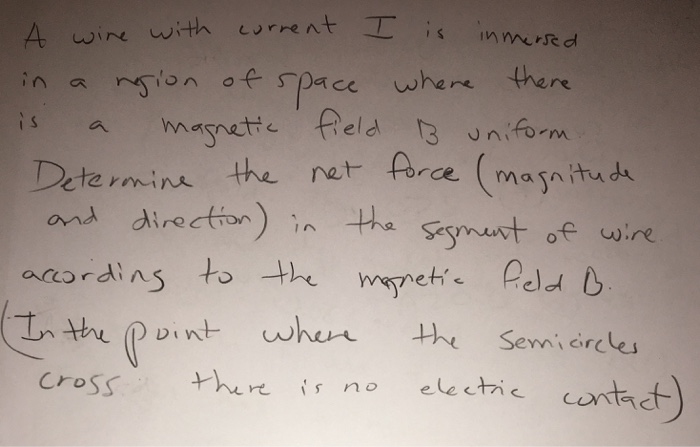 A wire with current I is inmersed
in a region of space where there
is a magnetic field B uniform
Determine the net force (magnitude
and direction) in the segment of wire
according to the magnetic field B.
(In the point where the semicircles
cross there is no electric contact)